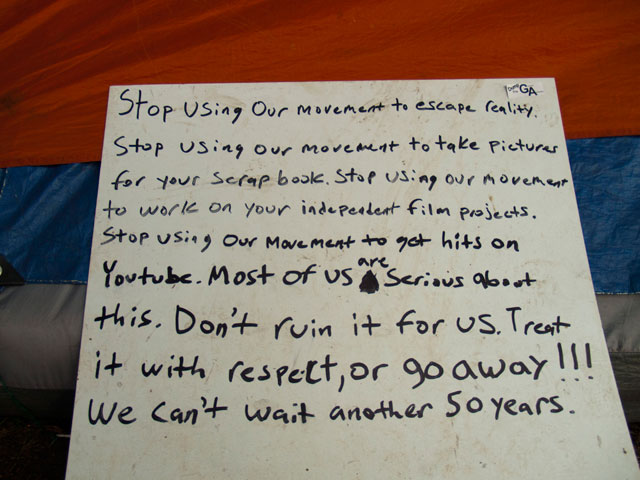 GA
Stop Using Our movement to escape reality.
Stop using our movement to take pictures
for your scrap book. Stop using our movement
to work on your independent film projects.
Stop using Our Movement to get hits on
Youtube. Most of us are Serious about
this. Don't ruin it for us. Treat
it with respect, or go away!!!
We can't wait another 50 years.